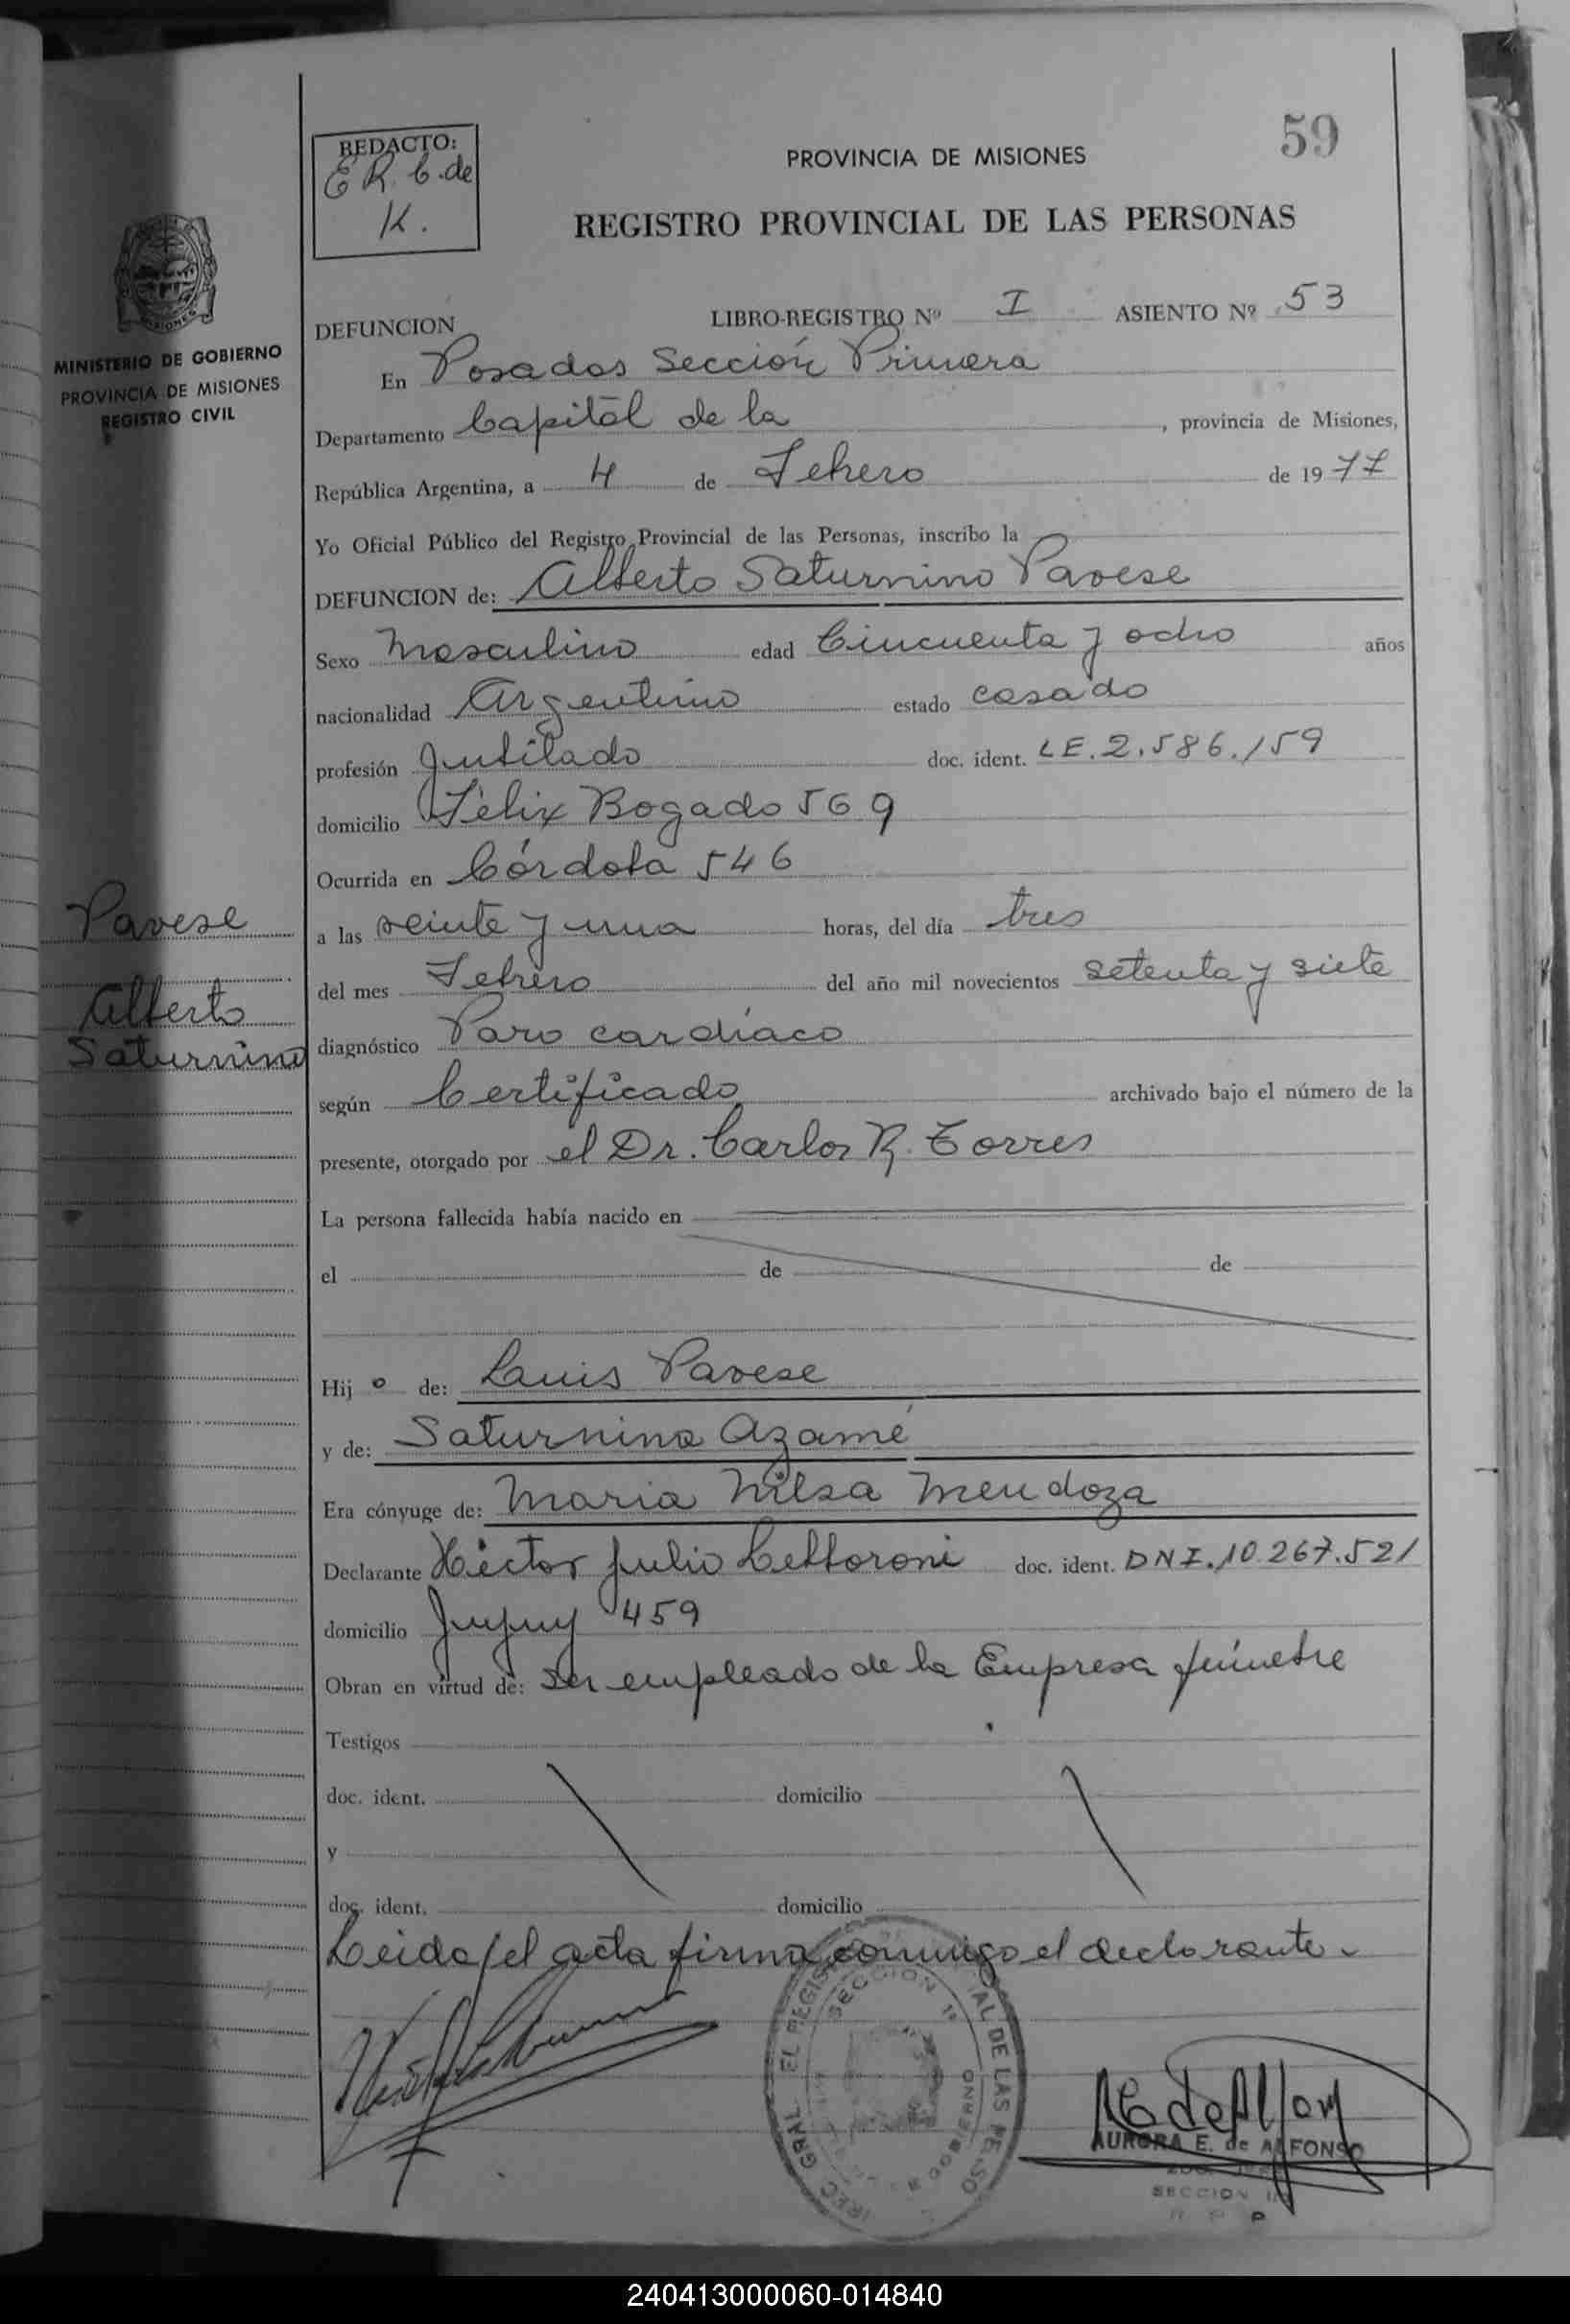 59
REDACTO:
E R. C. de
K.
PROVINCIA DE MISIONES
REGISTRO PROVINCIAL DE LAS PERSONAS
MINISTERIO DE GOBIERNO
PROVINCIA DE MISIONES
REGISTRO CIVIL
DEFUNCION LIBRO-REGISTRO Nº I ASIENTO Nº 53
En Posadas Sección Primera
Departamento Capital de la , provincia de Misiones,
República Argentina, a 4 de Febrero de 1977
Yo Oficial Público del Registro Provincial de las Personas, inscribo la
DEFUNCION de: Alberto Saturnino Pavese
Sexo Masculino edad Cincuenta y ocho años
nacionalidad Argentino estado casado
profesión Jubilado doc. ident. LE. 2.586.159
domicilio Félix Bogado 569
Ocurrida en Córdoba 546
Pavese
Alberto
Saturnino
a las veinte y una horas, del día tres
del mes Febrero del año mil novecientos setenta y siete
diagnóstico Paro cardíaco
según Certificado archivado bajo el número de la
presente, otorgado por el Dr. Carlos R. Torres
La persona fallecida había nacido en
el de de
Hijo de: Luis Pavese
y de: Saturnina Azamé
Era cónyuge de: Maria Nilsa Mendoza
Declarante Héctor Julio doc. ident. DNI. 10.267.521
domicilio Jujuy 459
Obran en virtud de: Ser empleado de la Empresa fúnebre
Testigos
doc. ident. domicilio
y
doc. ident. domicilio
Leida el acta firma conmigo el declarante
SECCION 1ª
AURORA E. de ALFONSO
SECCION
240413000060-014840